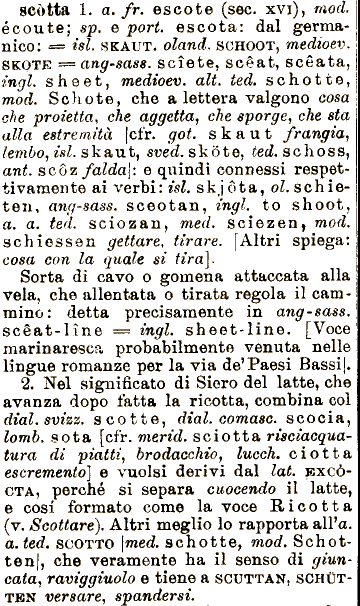 scòtta 1. a. fr. escote (sec. XVI), mod.
écoute; sp. e port. escota: dal germa-
nico: = isl. SKAUT. oland. SCHOOT, medioev.
SKOTE = ang-sass. scîete, scêat, scêata,
ingl. sheet, medioev. alt. ted. schotte,
mod. Schote, che a lettera valgono cosa
che proietta, che aggetta, che sporge, che sta
alla estremità [cfr. got. skaut frangia,
lembo, isl. skaut, sved. sköte, ted. schoss,
ant. scôz falda]: e quindi connessi respet-
tivamente ai verbi: isl. skjôta, ol. schie-
ten, ang-sass. sceotan, ingl. to shoot,
a. a. ted. sciozan, med. sciezen, mod.
schiessen gettare, tirare. [Altri spiega:
cosa con la quale si tira].
Sorta di cavo o gomena attaccata alla
vela, che allentata o tirata regola il cam-
mino: detta precisamente in ang-sass.
scêat-lîne = ingl. sheet-line. [Voce
marinaresca probabilmente venuta nelle
lingue romanze per la via de' Paesi Bassi].
2. Nel significato di Siero del latte, che
avanza dopo fatta la ricotta, combina col
dial. svizz. scotte, dial. comasc. scocia,
lomb. sota [cfr. merid. sciotta risciacqua-
tura di piatti, brodacchio, lucch. ciotta
escremento] e vuolsi derivi dal lat. EXCÒ-
CTA, perché si separa cuocendo il latte,
e cosí formato come la voce Ricotta
(v. Scottare). Altri meglio lo rapporta all'a.
a. ted. SCOTTO [med. schotte, mod. Schot-
ten], che veramente ha il senso di giun-
cata, raviggiuolo e tiene a SCUTTAN, SCHÜT-
TEN versare, spandersi.